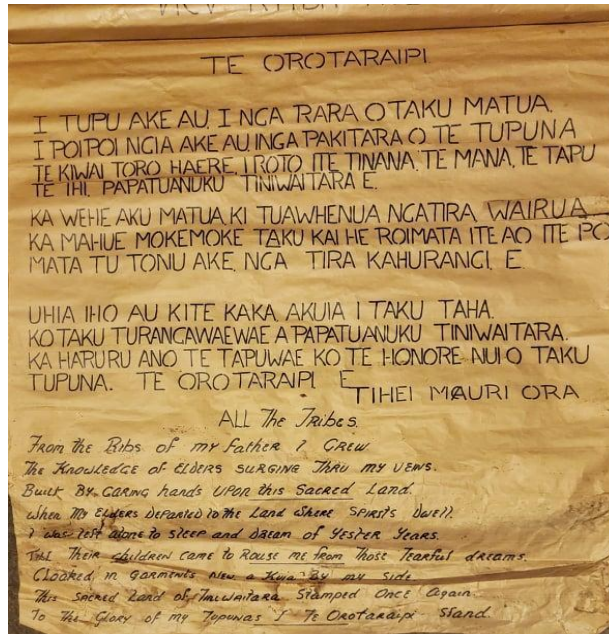 TE OROTARAIPI
I TUPU AKE AU, I NGA RARA O TAKU MATUA.
I POIPOI NGIA AKE AU, INGA PAKITARA O TE TUPUNA
TE KIWAI TORO HAERE, I ROTO ITE TINANA, TE MANA, TE TAPU
TE IHI, PAPATUANUKU TINIWAITARA E.
KA WEHE AKU MATUA, KI TUAWHENUA NGATIRA, WAIRUA
KA MAHUE MOKEMOKE TAKU KAI HE ROIMATA ITE AO ITE PO
MATA TU TONU AKE, NGA TIRA KAHURANGI, E.
UHIA IHO AU KITE KAKA, AKUIA I TAKU TAHA.
KO TAKU TURANGAWAEWAE A PAPATUANUKU TINIWAITARA.
KA HARURU ANO TE TAPUWAE KO TE HONORE NUI O TAKU
TUPUNA. TE OROTARAIPI E
TIHEI MAURI ORA
ALL The TRIBES.
From the Ribs of my father I GREW
The Knowledge of ELDERS SURGING THRU my VEINS.
Built BY CARING hands UPON this SACRED LAND.
When My ELDERS DEPARTED to the LAND WHERE SPIRITS DWELL.
I was left alone to SLEEP and DREAM of YESTER YEARS.
Till THEIR children CAME to ROUSE me from THOSE TEARFUL dreams.
CLOAKED in GARMENTS NEW a KUIA BY my SIDE
This SACRED LAND of TINIWAITARA STAMPED ONCE AGAIN
To the GLORY of my TUPUNAS I TE OROTARAIPI STAND.